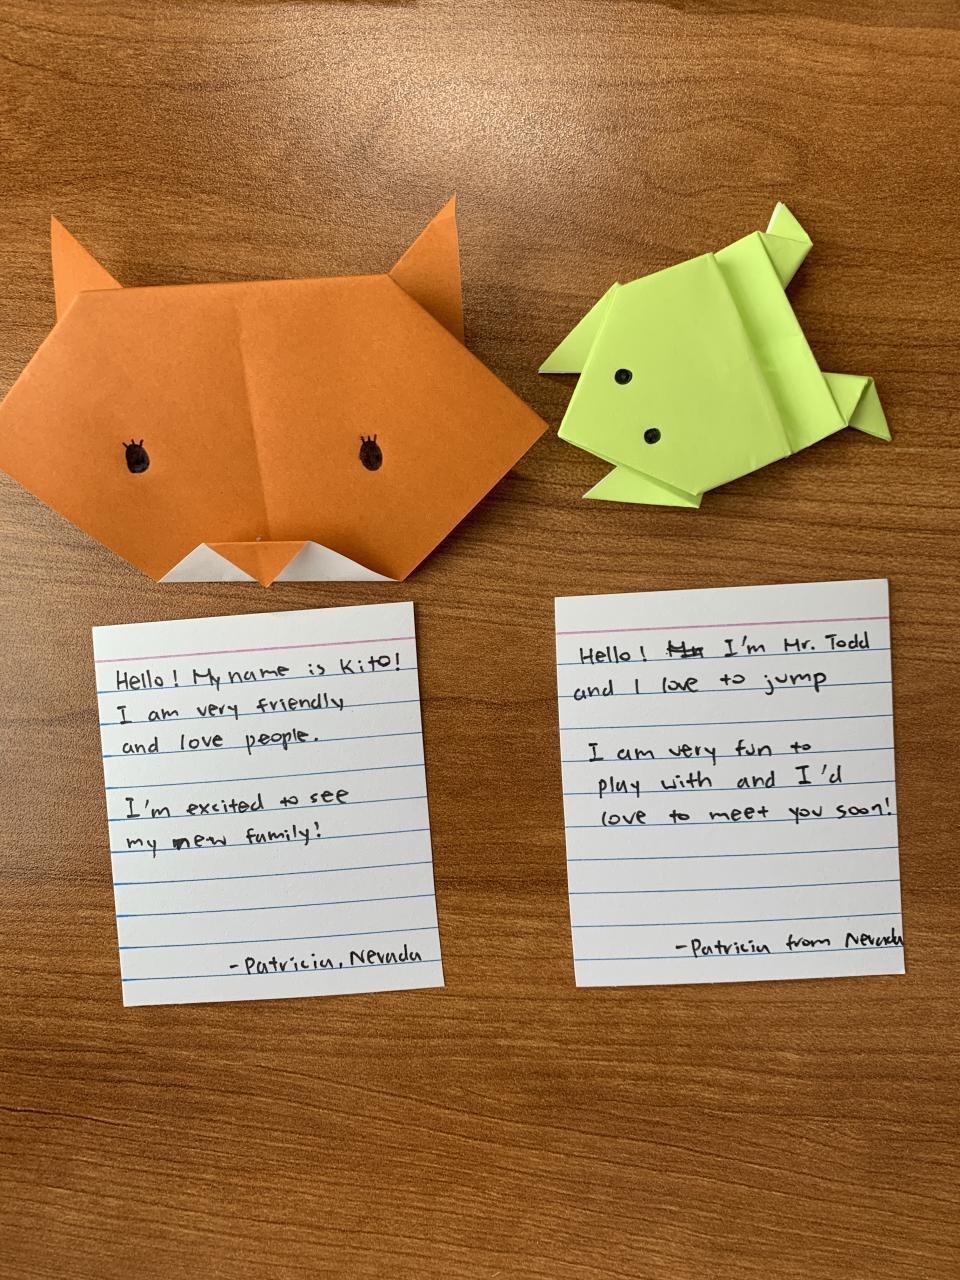 Hello! My name is Kito!
I am very friendly
and love people.
I'm excited to see
my new family!
-Patricia, Nevada
Hello! I'm Mr. Todd
and I love to jump
I am very fun to
play with and I'd
love to meet you soon!
-Patricia from Nevada